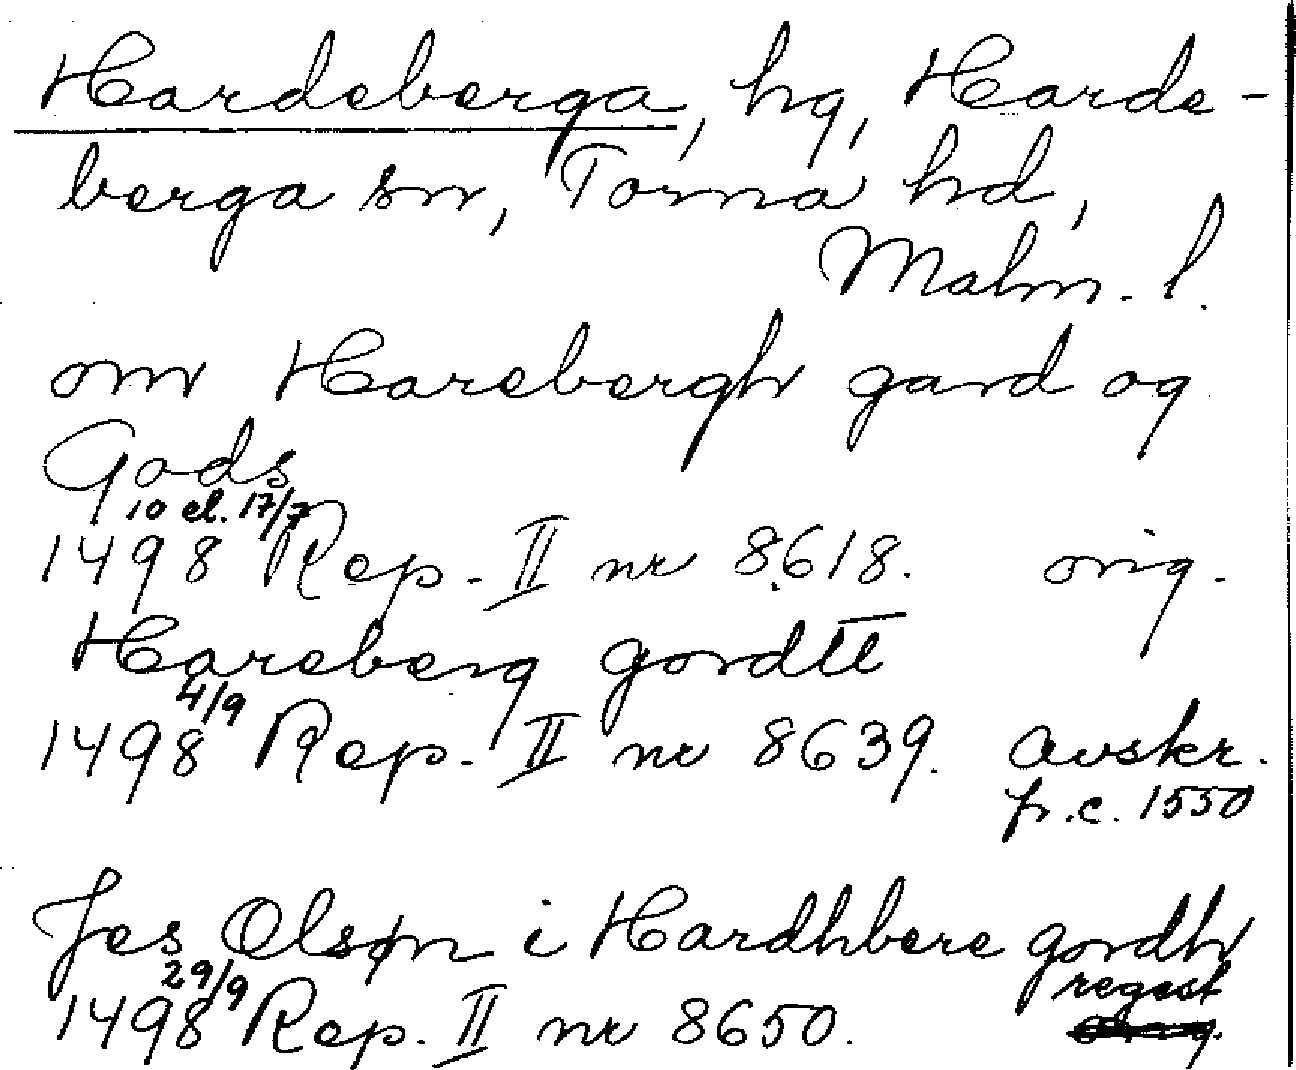 Hardeberga, hg, Harde-
berga sn, Torna hd,
Malm. l.
om Harebergh gard og
Gods
10 el. 17/7
1498 Rep. II nr 8618. orig.
Hareberg gordtt
4/9
1498 Rep. II nr 8639. avskr.
fr. c. 1550
Jes Olsøn i Hardhbere gordh
29/9 regest
1498 Rep. II nr 8650.